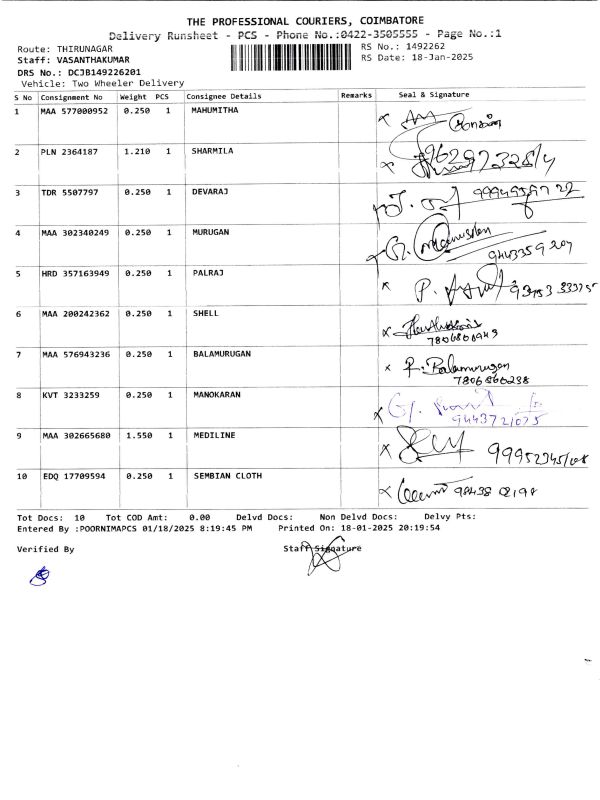 THE PROFESSIONAL COURIERS, COIMBATORE
Delivery Runsheet - PCS - Phone No.:0422-3505555 - Page No.:1
Route: THIRUNAGAR RS No.: 1492262
Staff: VASANTHAKUMAR RS Date: 18-Jan-2025
DRS No.: DCJB149226201
Vehicle: Two Wheeler Delivery
S No Consignment No Weight PCS Consignee Details Remarks Seal & Signature
1 MAA 577000952 0.250 1 MAHUMITHA
2 PLN 2364187 1.210 1 SHARMILA
3 TDR 5507797 0.250 1 DEVARAJ
4 MAA 302340249 0.250 1 MURUGAN
9443359207
5 HRD 357163949 0.250 1 PALRAJ
6 MAA 200242362 0.250 1 SHELL
7806806943
7 MAA 576943236 0.250 1 BALAMURUGAN P. Balamurugan
7806860238
8 KVT 3233259 0.250 1 MANOKARAN
9443721075
9 MAA 302665680 1.550 1 MEDILINE
10 EDQ 17709594 0.250 1 SEMBIAN CLOTH 98438 02198
Tot Docs: 10 Tot COD Amt: 0.00 Delvd Docs: Non Delvd Docs: Delvy Pts:
Entered By :POORNIMAPCS 01/18/2025 8:19:45 PM Printed On: 18-01-2025 20:19:54
Verified By Staff Signature